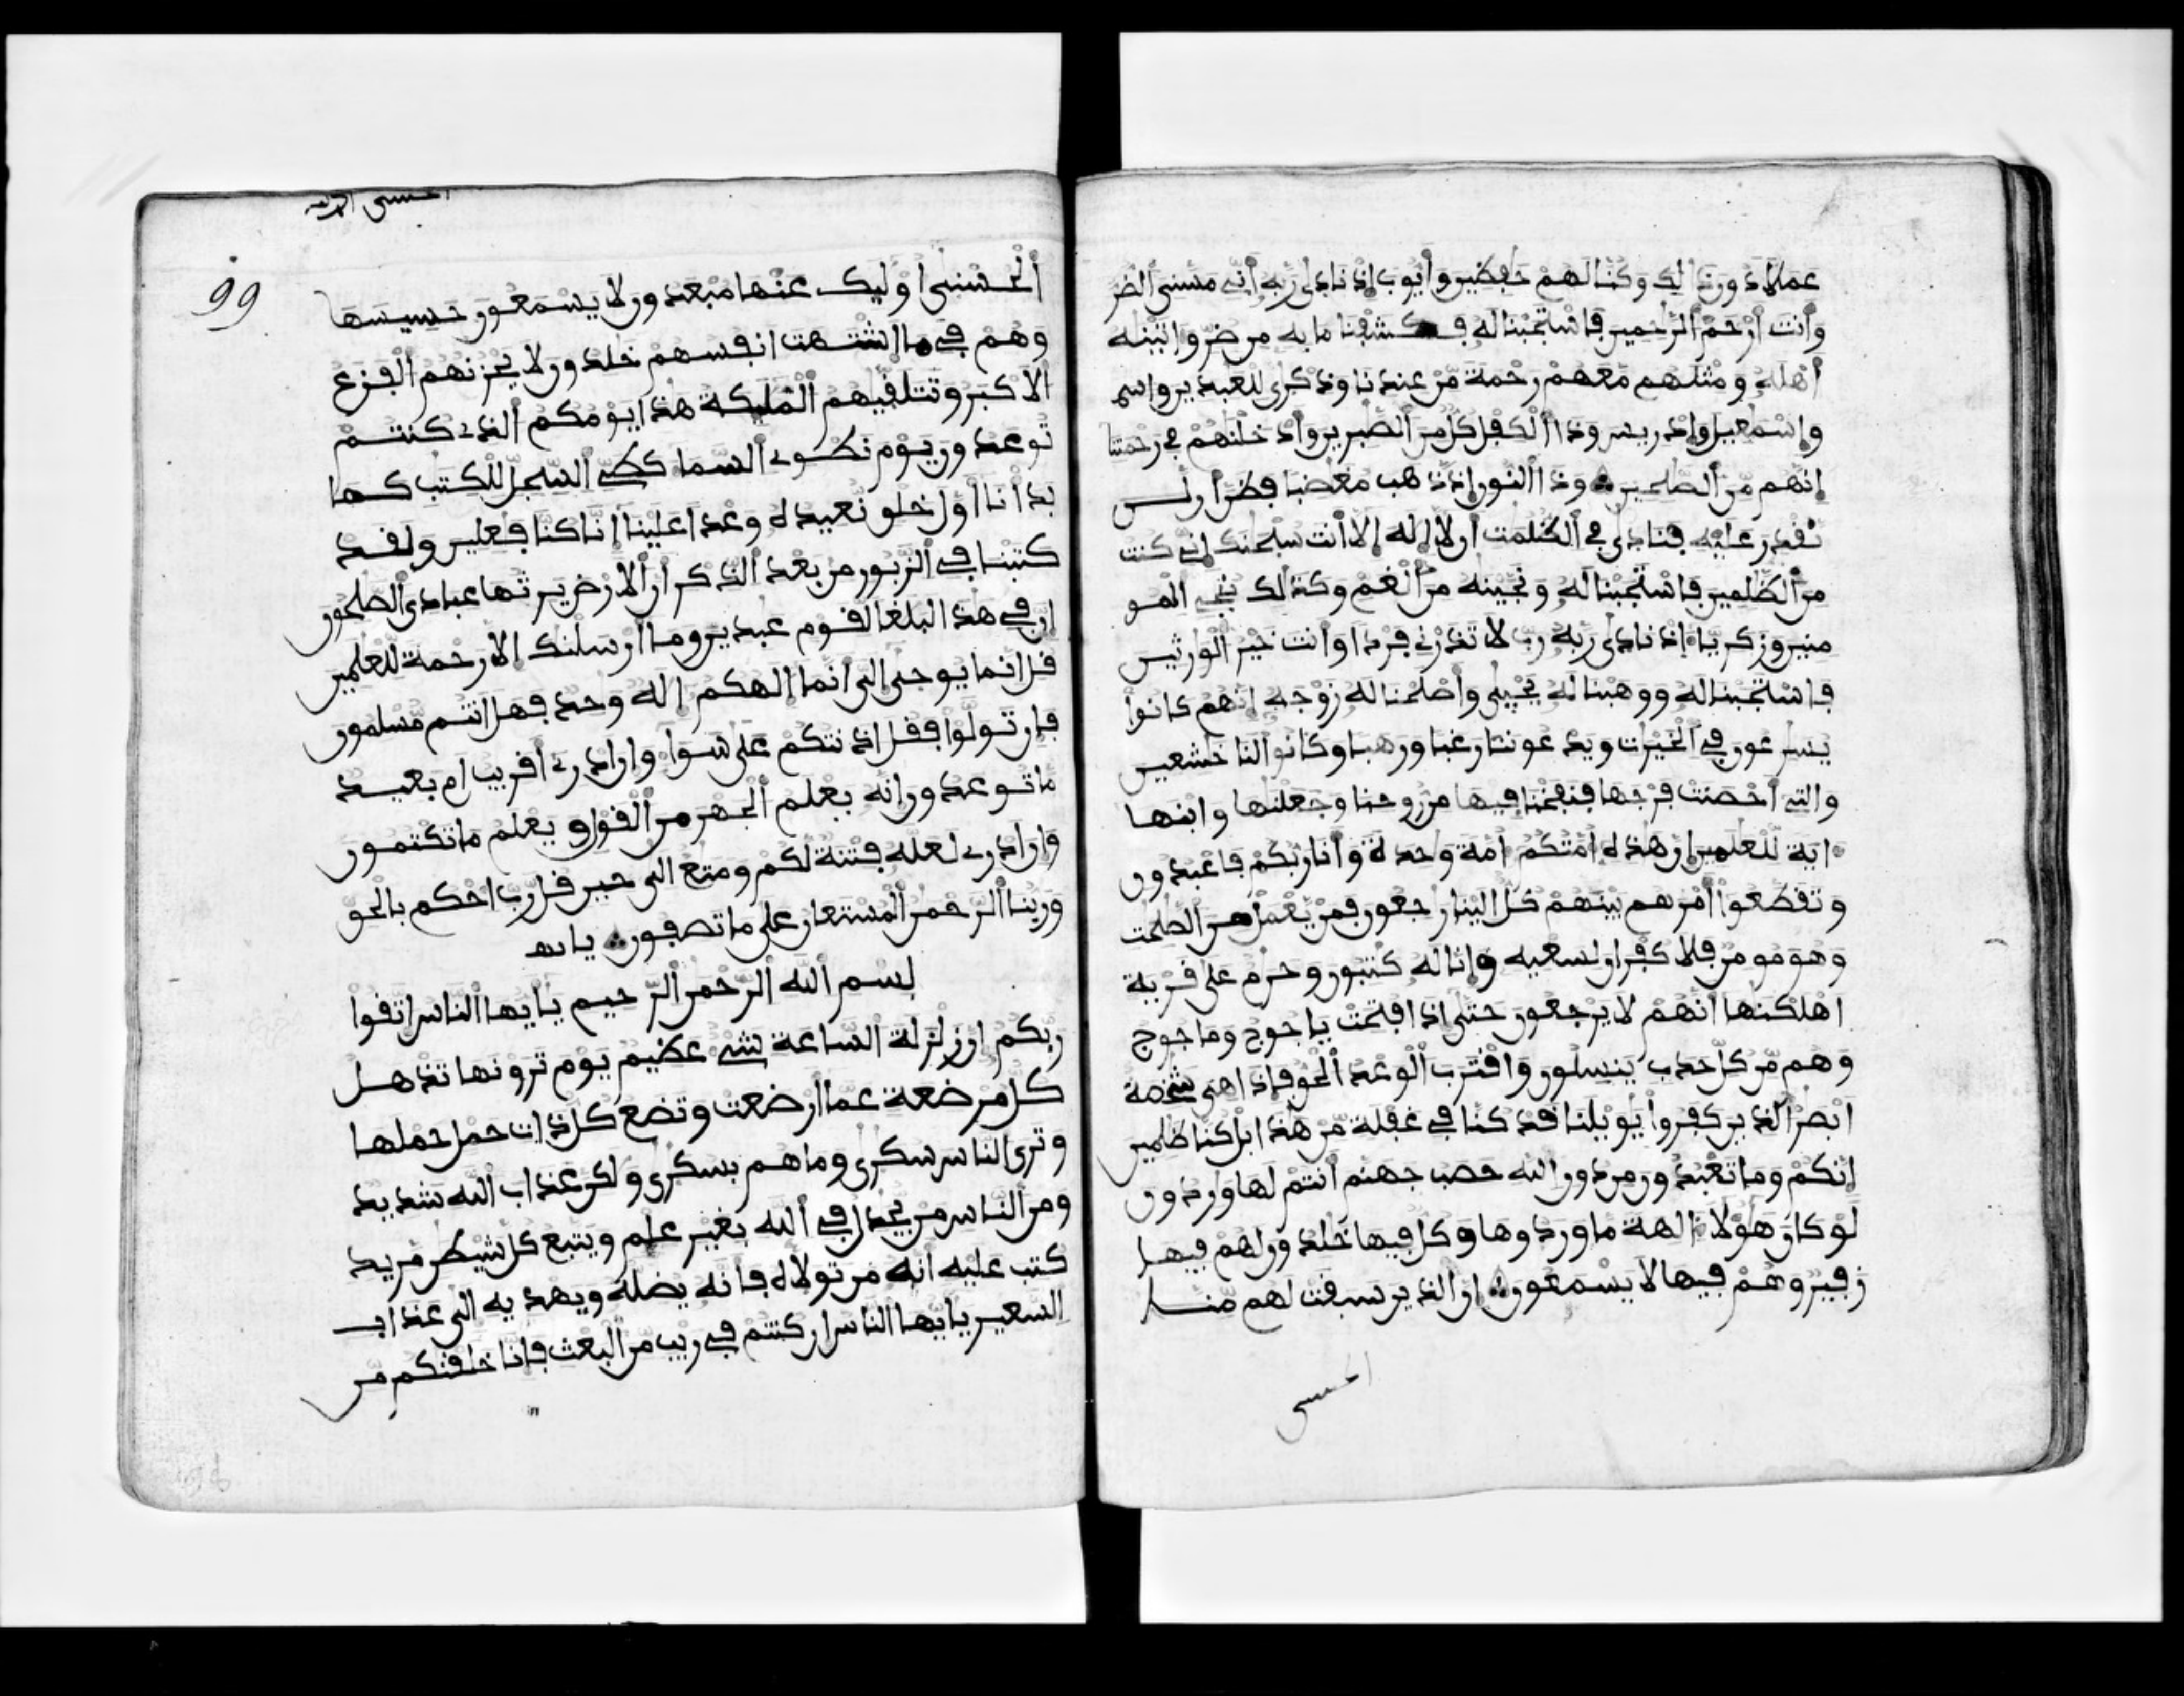 عملا دون ذلك وكنا لهم حفظين وأيوب إذ نادى ربه أني مسني الضر
وأنت أرحم الرحمين فاستجبنا له فكشفنا ما به من ضر واتينه
أهله ومثلهم معهم رحمة من عندنا وذكرى للعبدين واسم
وإسمعيل وإدريس وذا الكفل كل من الصبرين وأدخلنهم في رحمتنا
إنهم من الصلحين وذا النون إذ ذهب مغضبا فظن أن لن
نقدر عليه فنادى في الظلمت أن لا إله إلا أنت سبحنك إني كنت
من الظلمين فاستجبنا له ونجينه من الغم وكذلك نجي المو
منين وزكريا إذ نادى ربه رب لا تذرني فردا وأنت خير الورثين
فاستجبنا له ووهبنا له يحيى وأصلحنا له زوجه إنهم كانوا
يسرعون في الخيرت ويدعوننا رغبا ورهبا وكانوا لنا خشعين
والتي أحصنت فرجها فنفخنا فيها من روحنا وجعلنها وابنها
اية للعلمين إن هذه أمتكم أمة وحدة وأنا ربكم فاعبدون
وتقطعوا أمرهم بينهم كل إلينا رجعون فمن يعمل من الصلحت
وهو مومن فلا كفران لسعيه وإنا له كتبون وحرم على قرية
اهلكنها أنهم لا يرجعون حتى إذا فتحت ياجوج وماجوج
وهم من كل حدب ينسلون واقترب الوعد الحق فإذا هي شخصة
ابصر الذين كفروا يويلنا قد كنا في غفلة من هذا بل كنا ظلمين
إنكم وما تعبدون من دون الله حصب جهنم أنتم لها وردون
لو كان هؤلا الهة ما وردوها وكل فيها خلدون لهم فيها
زفير وهم فيها لا يسمعون ان الذين سبقت لهم منا
الحسنى
99
الحسنى أوليك عنها مبعدون لا يسمعون حسيسها
وهم في ما اشتهت انفسهم خلدون لا يحزنهم الفزع
الاكبر وتتلقيهم المليكة هذا يومكم الذي كنتم
توعدون يوم نطوي السما كطي السجل للكتب كما
بدأنا أول خلق نعيده وعدا علينا إنا كنا فعلين ولقد
كتبنا في الزبور من بعد الذكر أن الارض يرثها عبادي الصلحون
إن في هذا لبلغا لقوم عبدين وما أرسلنك الا رحمة للعلمين
قل انما يوحى إلي أنما إلهكم إله وحد فهل انتم مسلمون
فإن تولوا فقل اذنتكم على سوا وان ادري أقريب ام بعيد
ما توعدون انه يعلم الجهر من القول ويعلم ما تكتمون
وان ادري لعله فتنة لكم ومتع الى حين قل رب احكم بالحق
وربنا الرحمن المستعان على ما تصفون
بسم الله الرحمن الرحيم يايها الناس اتقوا
ربكم إن زلزلة الساعة شي عظيم يوم ترونها تذهل
كل مرضعة عما أرضعت وتضع كل ذات حمل حملها
وترى الناس سكرى وما هم بسكرى ولكن عذاب الله شديد
ومن الناس من يجدل في الله بغير علم ويتبع كل شيطن مريد
كتب عليه أنه من تولاه فانه يضله ويهديه الى عذاب
السعير يايها الناس ان كنتم في ريب من البعث فإنا خلقنكم من